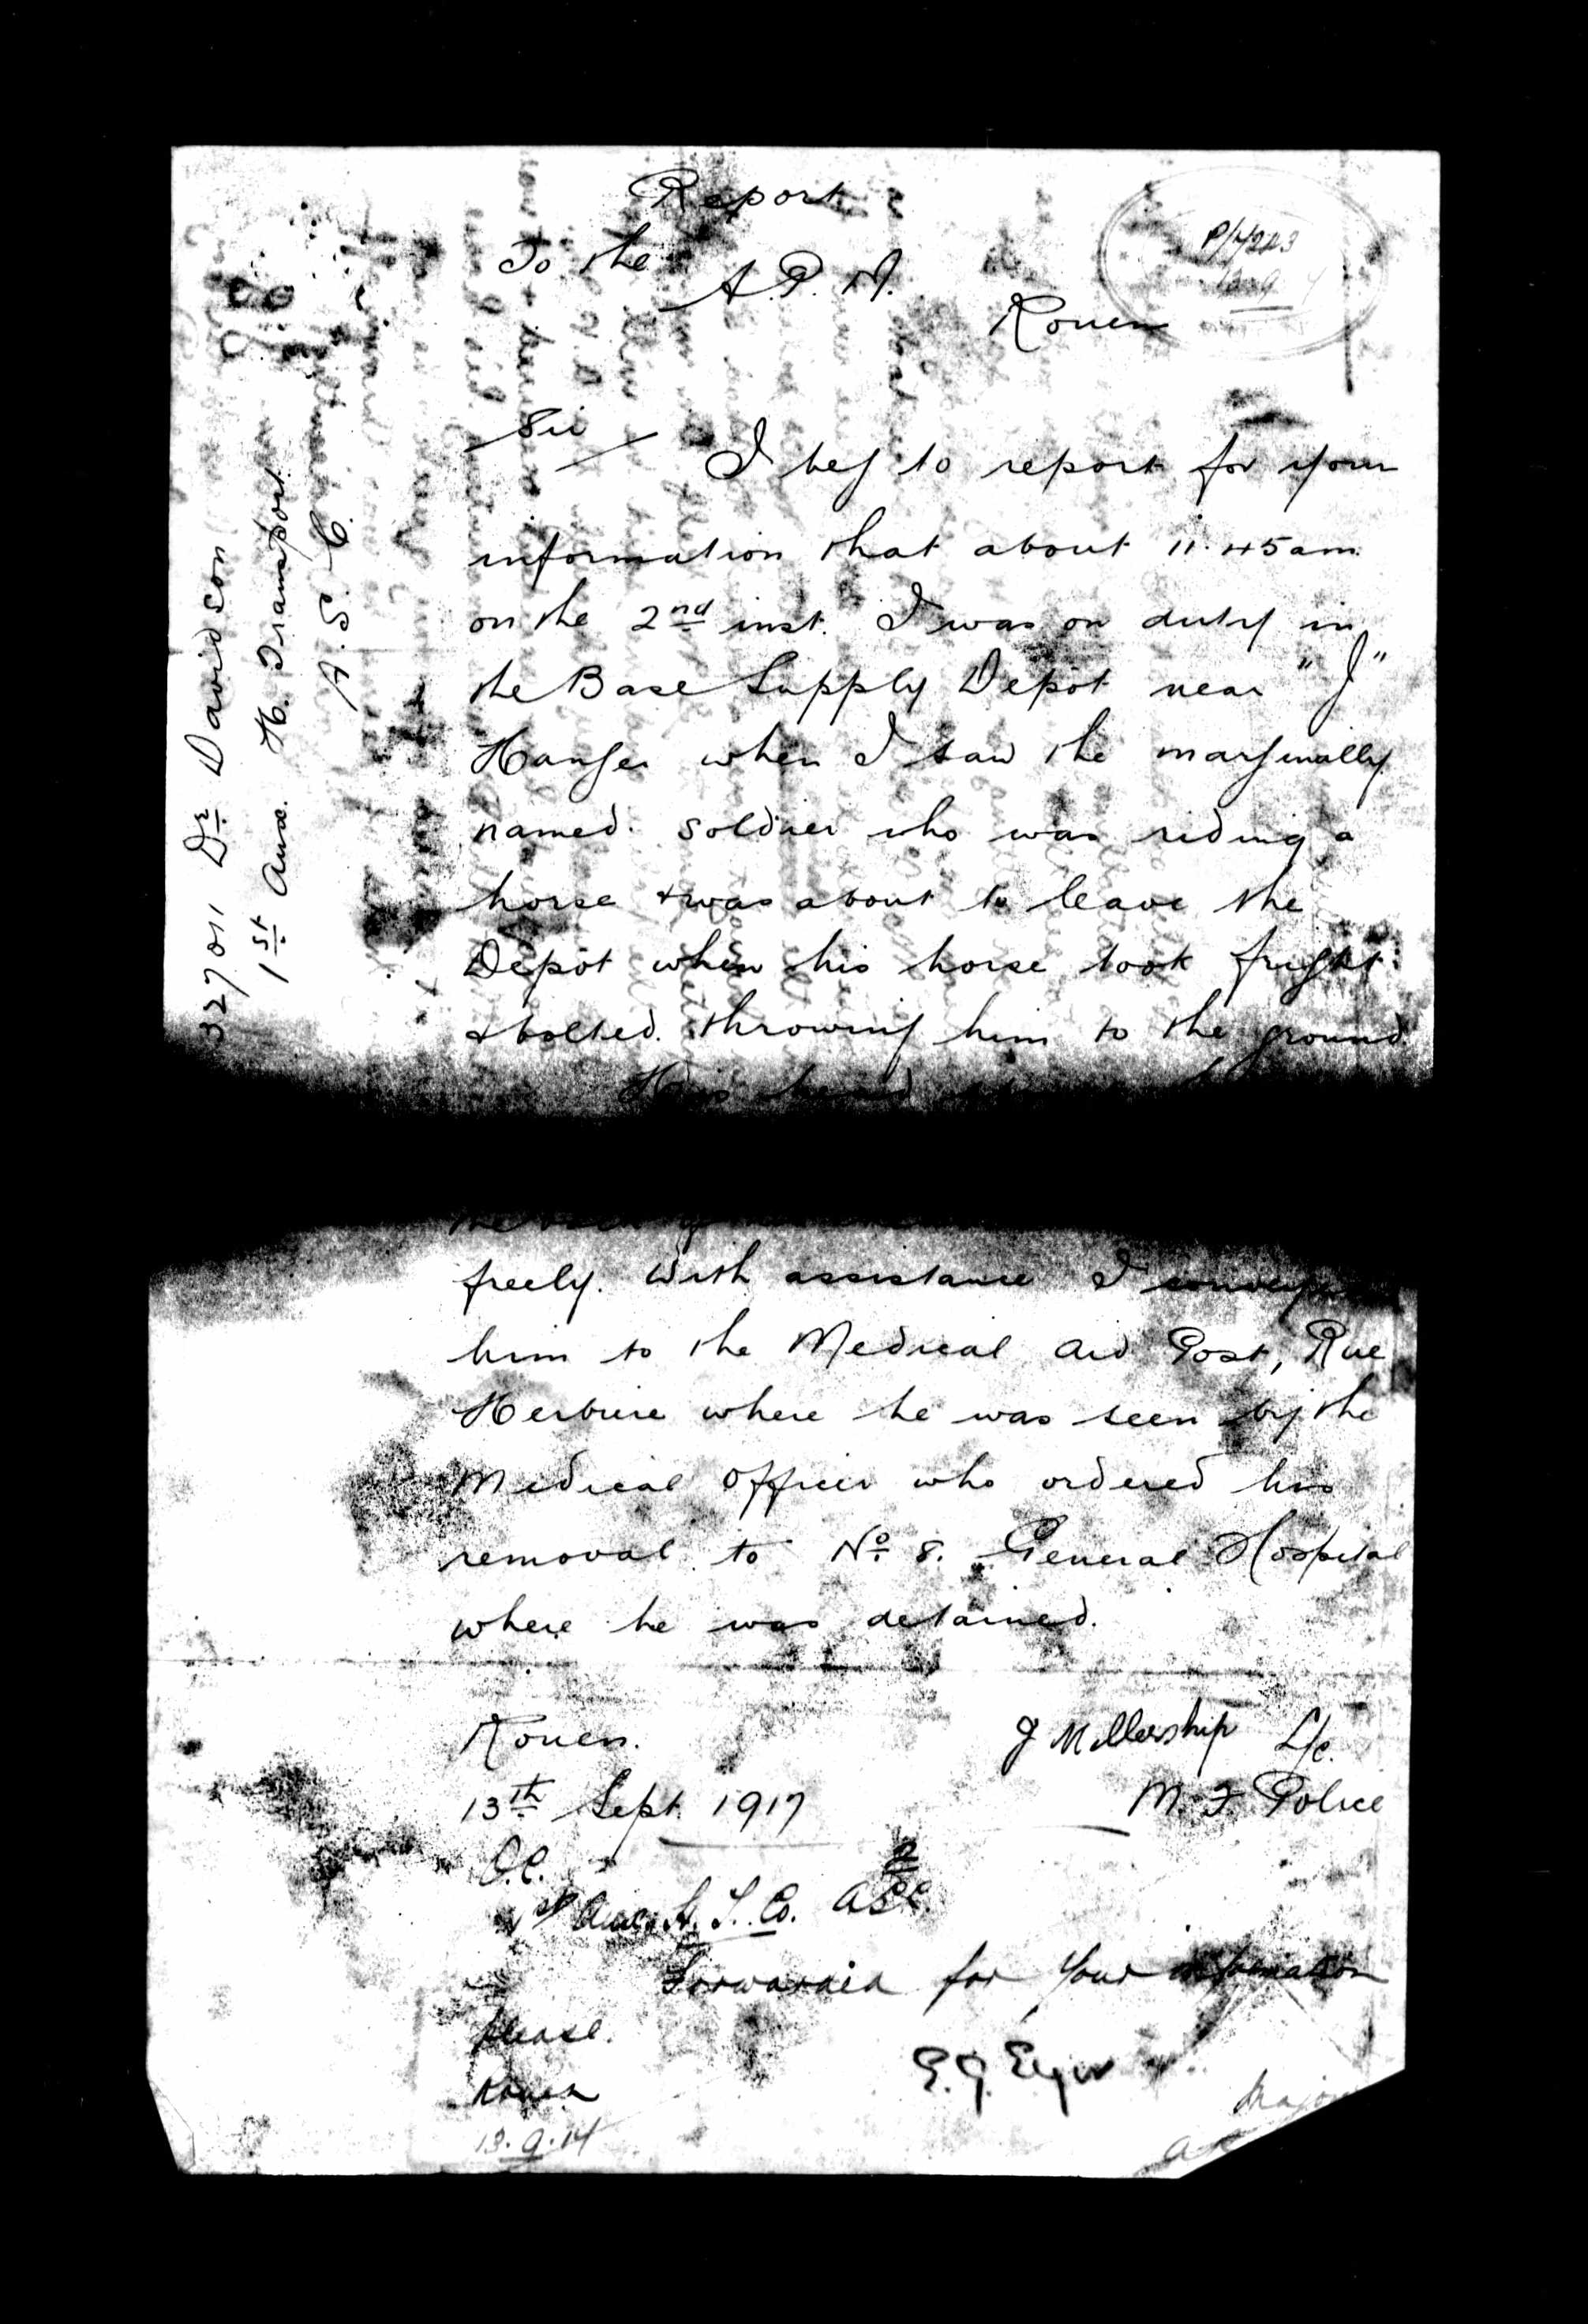 Report
To the
A.P.M.
Rouen
P/4243
Sir
I beg to report for your
information that about 11.45am
on the 2nd inst. I was on duty in
the Base Supply Depôt near "J"
Hanger when I saw the marginally
named soldier who was riding a
horse + was about to leave the
Depôt when his horse took fright
+ bolted. throwing him to the ground.
His head
32701 Dr Davidson
1st Aux. H. Transport
A.S.C.
freely. With assistance I
him to the Medical Aid Post, Rue
Herbiere where he was seen by the
Medical Officer who ordered his
removal to No 8. General Hospital
where he was detained.
Rouen.
J Millership L/c.
13th Sept. 1917
M. F Police
O.C.
1st Aux. H. T. Co. ASC.
Forwarded for your information
please.
Rouen
13.9.17
Major